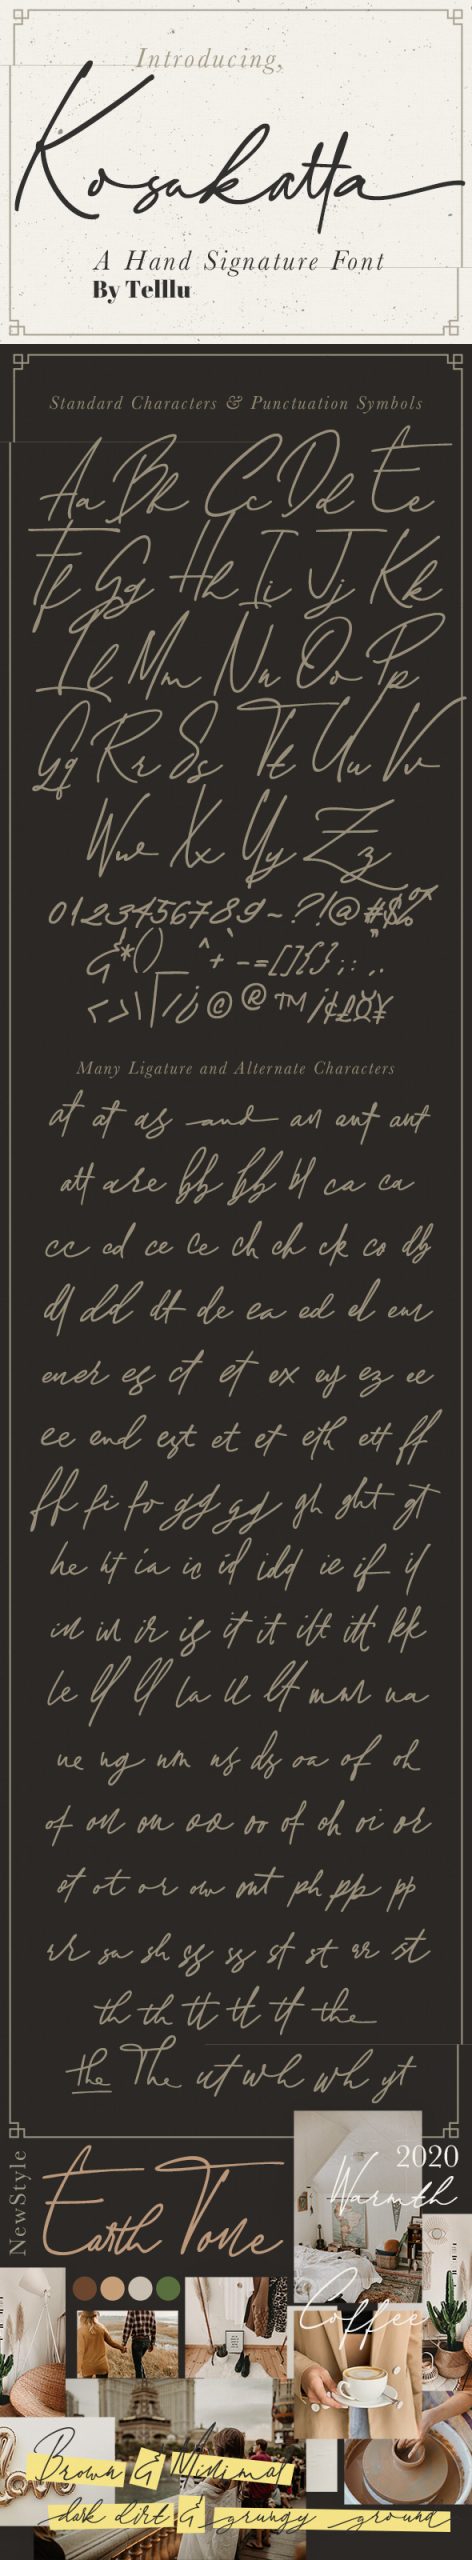 Introducing,
Kosukatta
A Hand Signature Font
By Telllu
Standard Characters & Punctuation Symbols
Aa Bb Cc Dd Ee
Ff Gg Hh Ii Jj Kk
Ll Mm Nn Oo Pp
Qq Rr Ss Tt Uu Vv
Ww Xx Yy Zz
0123456789~?!@#$%
&*()_^+-=[]{};:,.
<>\|/¿©®™¡¢£¤¥
Many Ligature and Alternate Characters
at at as and an ant ant
att are bb bb bl ca ca
cc cd ce ce ch ch ck co db
dl dd dt de ea ed el em
ener es ct et ex ey ez ee
ee end est et et eth ett ff
ff fi fo gg gg gh ght gt
he ht ia ic id idd ie if il
in in ir is it it itt itt kk
le ll ll la ll lt mm na
ne ng nm ns ds oa of oh
of on on oo oo of oh oi or
ot ot or ow ont ph pp pp
rr sa sh ss ss st st st
th th tt tt tt the
the The ut wh wh yt
NewStyle
Earth Tone
2020
Warmth
Coffee
love
Brown & Minimal
dark dirt & grungy ground